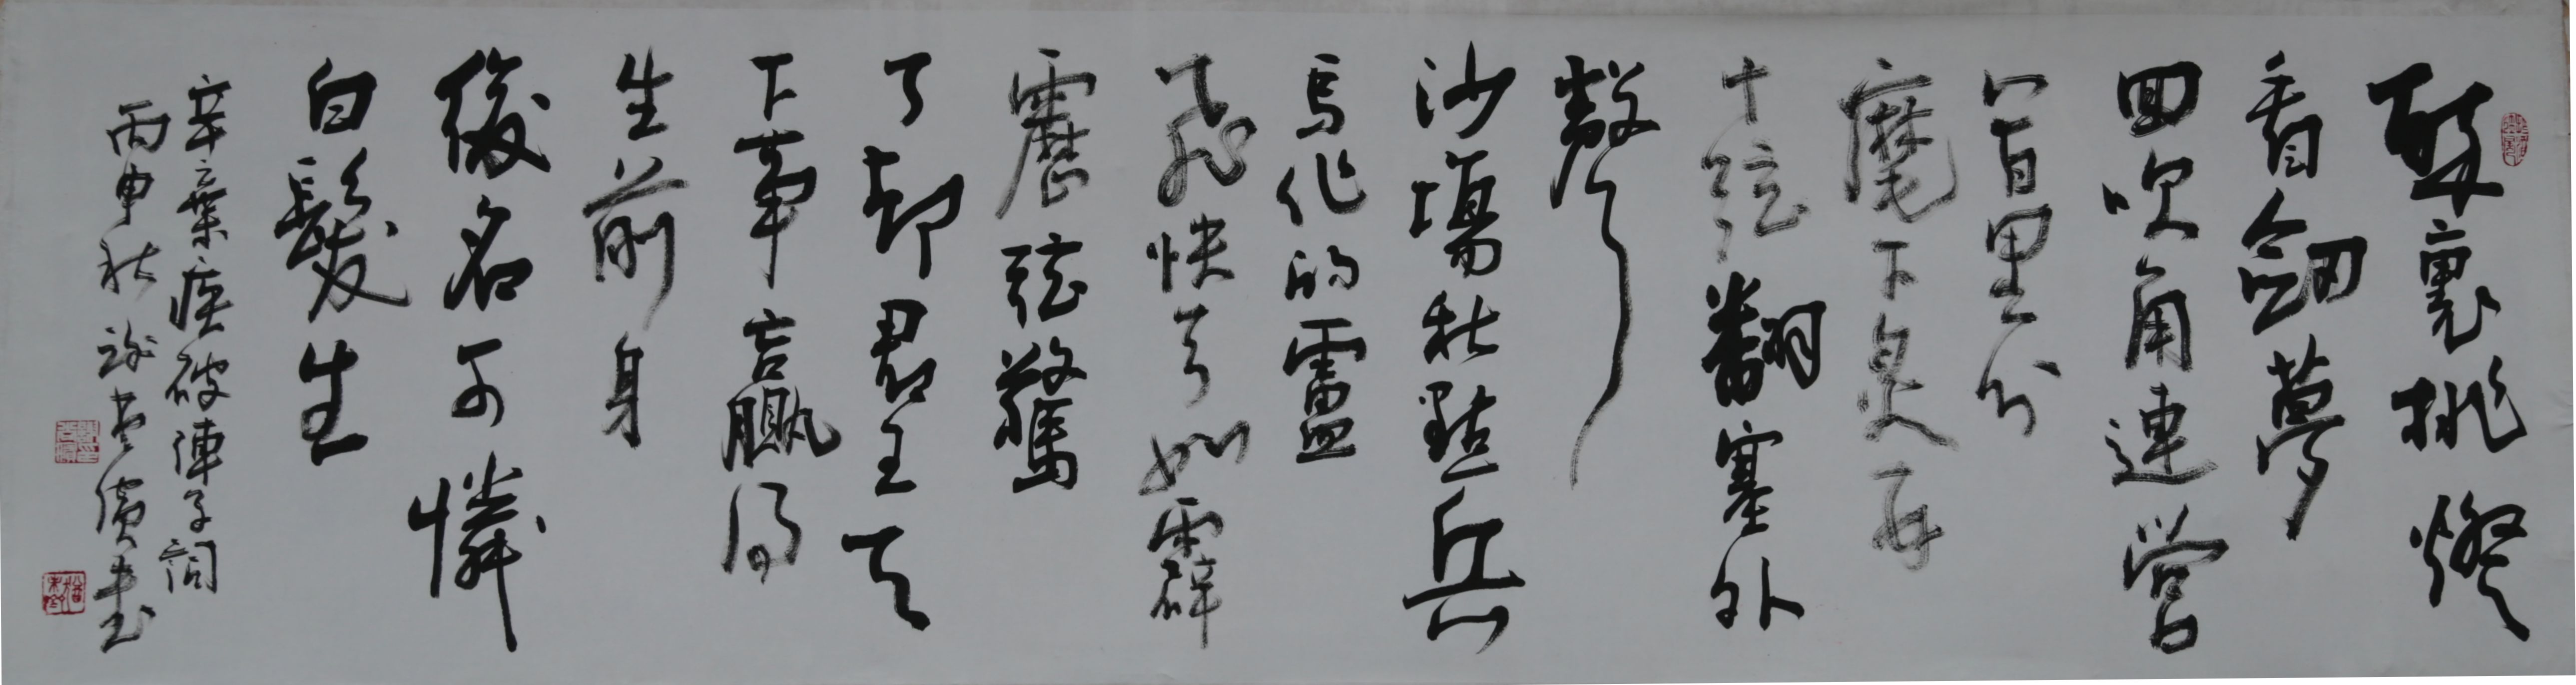 醉裏挑燈
看劍夢
回吹角連營
八百里分
麾下炙五
十弦翻塞外
聲
沙場秋點兵
馬作的盧
飛快弓如霹
靂弦驚
了却君王天
下事贏得
生前身
後名可憐
白髮生
辛棄疾破陣子詞
丙申秋書